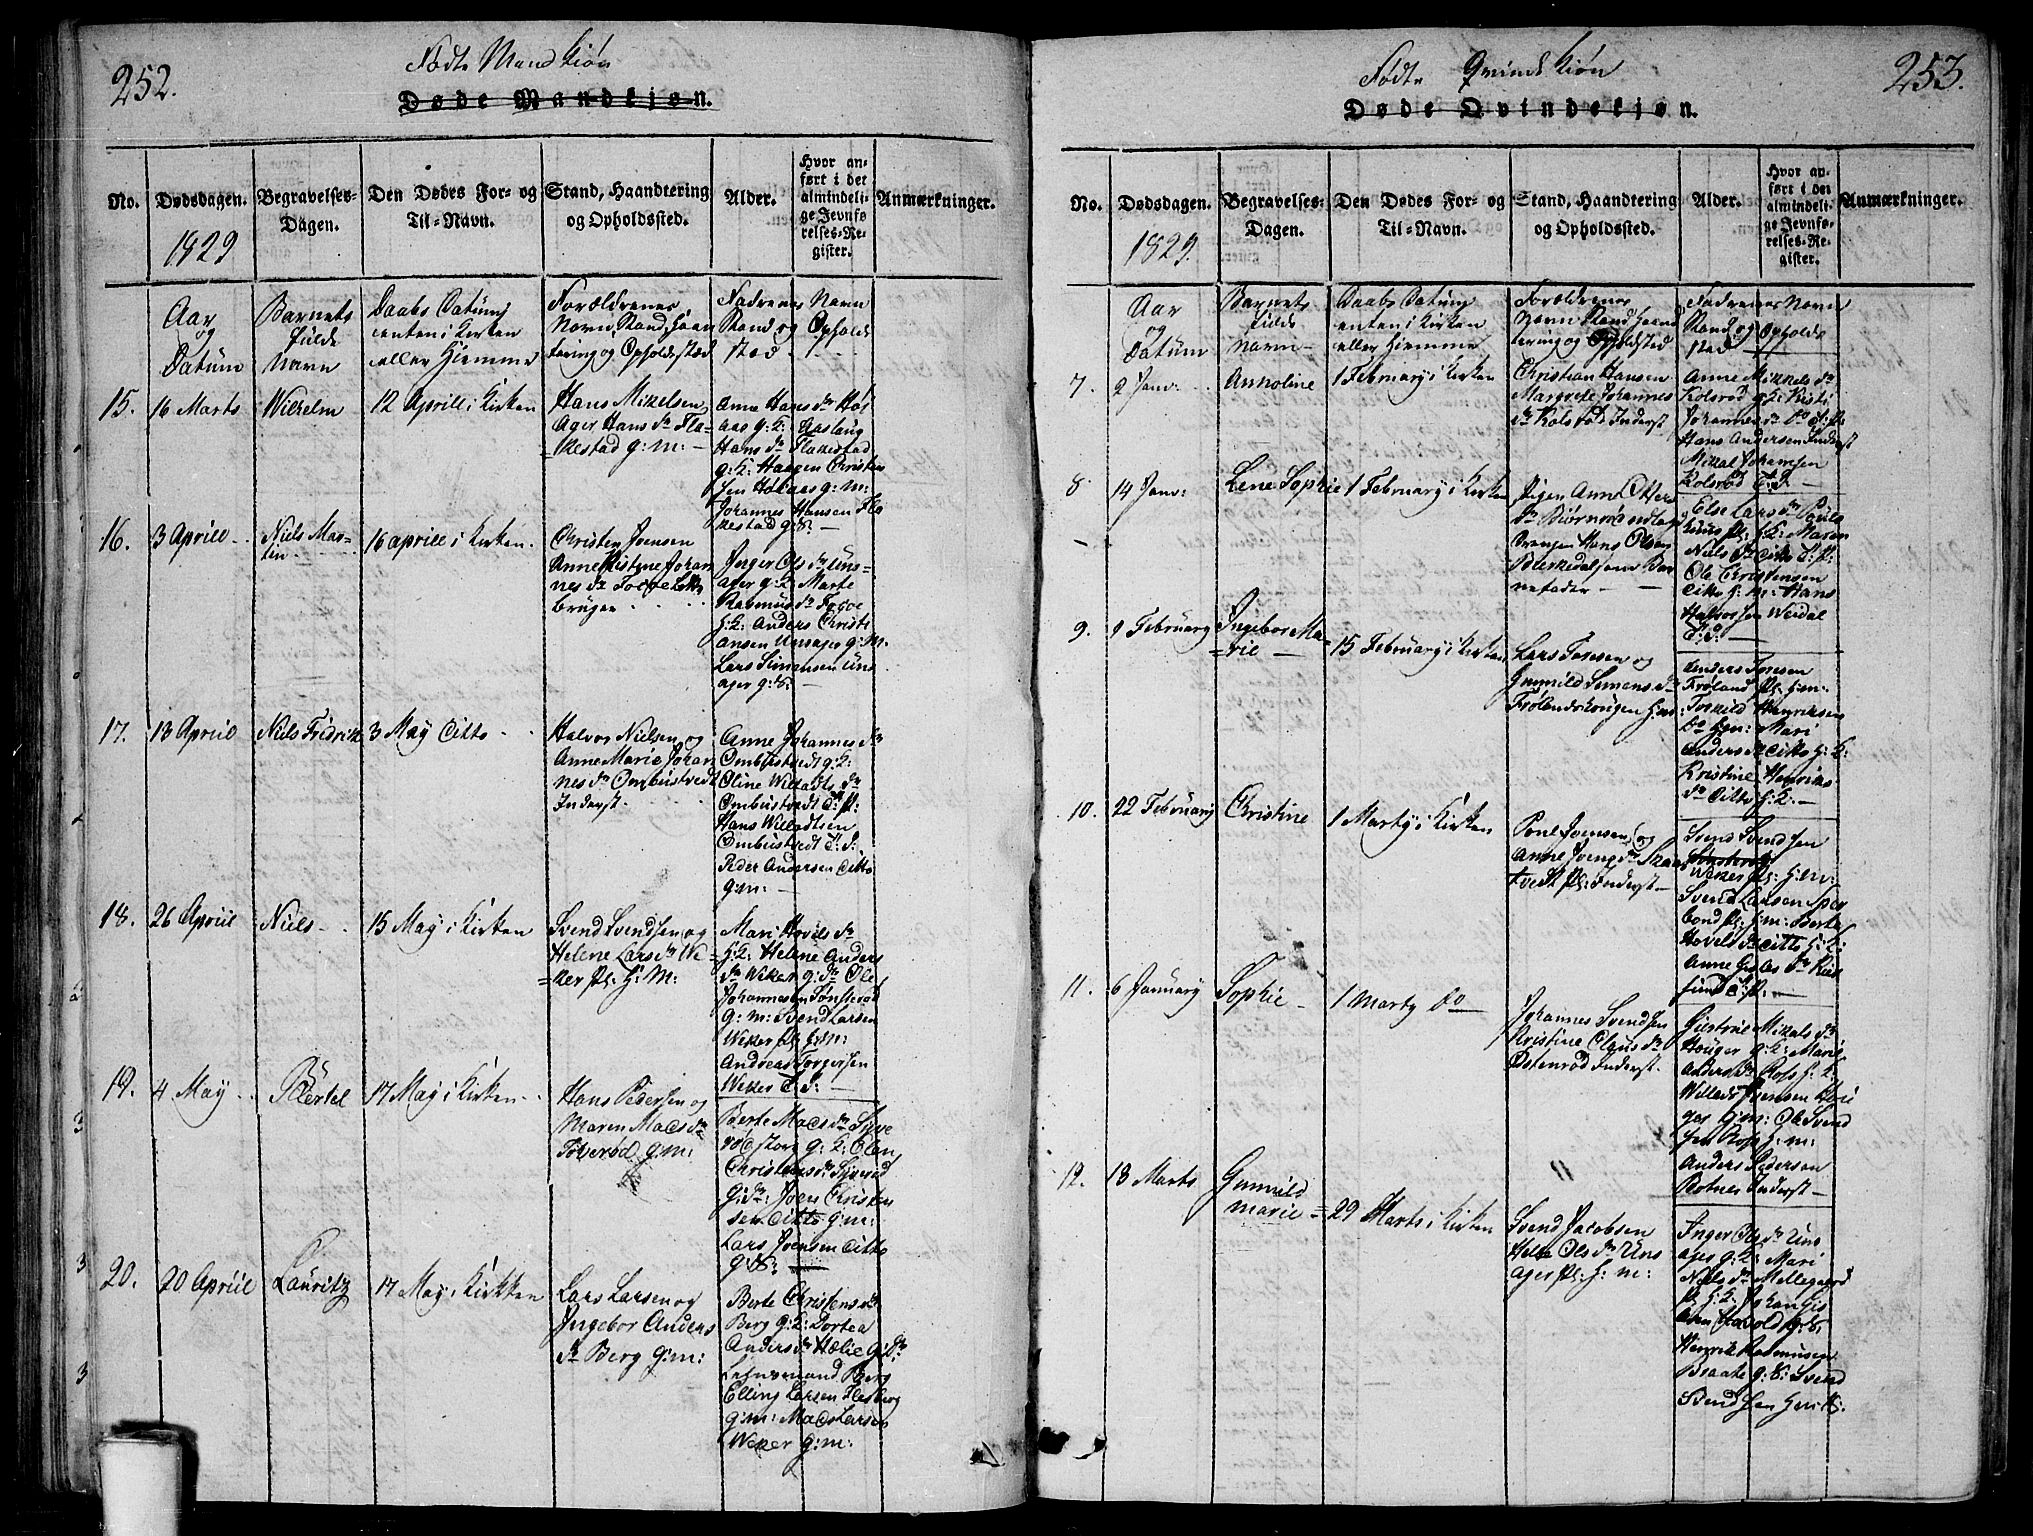 252.
Fødte Mandkiøn
Døde Mandkjøn.
No.
Dødsdagen.
1829
Begravelses-
Dagen.
Den Dødes For- og
Til-Navn.
Stand, Haandtering
og Opholdssted.
Alder.
Hvor an-
ført i det
almindeli-
ge Jevnfø-
relses-Re-
gister.
Anmærkninger.
Aar
og
Datum
Barnets
fulde
Navn
Daabs Datum
enten i Kirken
eller Hiemme
Forældrenes
Navn, Stand, Haan
tering og Opholdsted
Fadrenes Navn
Stand og Opholds
sted
15.
16 Marts
Wilhelm
12 Aprill i Kirken
Hans Mikelsen
Ager Hans dr Fla-
kestad g: m:
Anne Hans dr Høl
aas g: K: Aaslaug
Hans dr Flakestad
g: K: Haagen Christen
sen Hølaas g: m:
Johannes Hansen Fla
kestad g: S:
16.
3 Aprill
Niels Mar-
tin
16 aprill i Kirken
Christen Joensen
Anne Kistine Johan
nes dr
bruger
Inger Ols dr Uns-
ager g: K: Marte
Rasmus dr
g: K: Anders Christi
ansen Unsager g: M.
Lars Simensen Uns
ager g: S:
17.
13 Apriil
Niels Fridrik
3 May Ditto
Halvor Nielsen og
Anne Marie Johan
nes dr Ombustvedt
Inderst
Anne Johannes dr
Ombustvedt g: K:
Oline Willads dr
Ombustvedt T: P:
Hans Willadtsen
Ombustvedt T: D:
Peder Andersen Ditto
g: m:
18.
26 Apriil
Niels
15 May i Kirken
Svend Svendsen og
Helene Lars dr We
ker pl: H: M:
Mari Hovels dr
H: K: Helene Anders
dr Weker g: dr Ole
Johannesen Sønsterød
g: m: Svend Larsen
Weker pl: H: m:
Andreas Torgersen
Weker T: D:
19.
4 May
Bertel
17 May i Kirken
Hans Pedersen og
Maren Macs dr
Toverød g: m:
Berte Macs dr
g: K: Olen
Christens dr
G: dr: Joen Christen
sen Ditto g: m:
Lars Joensen Ditto
g: S:
20.
20 Apriil
Lauritz
17 May i Kirkken
Lars Larsen og
Ingebor Anders
dr Berg g: m:
Berte Christens dr
Berg g: K: Dortea
Anders dr Hælie G: dr:
Berg
Elling Larsen Flesberg
g: m: Macs Larsen
Weker g: m:
253.
Fødte Qvindekiøn
Døde Qvindekjøn.
No.
Dødsdagen.
1829.
Begravelses-
Dagen.
Den Dødes For- og
Til-Navn.
Stand, Haandtering
og Opholdssted.
Alder.
Hvor an-
ført i det
almindeli-
ge Jevnfø-
relses-Re-
gister.
Anmærkninger.
Aar
og
Datum
Barnets
fulde
Navn
Daabs Datum
enten i Kirken
eller Hiemme
Forældrenes
Navn Stand Haand
tering og Opholdsted
Fadrenes Navn
Stand og Opholds
sted
7.
2 Janr:
Annoline
1 February i Kirken
Christian Hansen
Margrete Johannes
dr Kolsrød Inderst
Anne Mikkels dr
Kolsrød g: K: Kisti
Johannes dr do T: P:
Hans Andersen Inderst
Mikal Johannesen
Kolsrød T: D.
8.
14 Janr:
Lene Sophie
1 February i Kirken
Pigen Anne Otters
dr Biørnrød
Drengen Hans Olsen
Berkedal som Bar
nefader
Else Lars dr Pouls
pl: H: K: Maren
Niels dr Ditto T: P:
Ole Christensen
Ditto H: m: Hans
Halvorsen Weidal
T: D:
9.
9 February
Ingebor Ma-
rie
15 February i Kirken
Lars Toresen og
Gunnild Semens dr
Frølandskougen Hm
Anders Toresen
Frøland pl: H: m:
Torkild Henriksen
do H: m: Mari
Anders dr Ditto H: K:
Kristine Henriks
dr Ditto H: K:
10.
22 February
Christine
1 Marty i Kirken
Poul Joensen og
Anne Joens dr Skaar
tvedt pl: Inderst
Svend Svendsen
Weker pl: H: m:
Svend Larsen Sper
bond pl: H: m: Berte
Hovels dr Ditto H: K:
Anne Gislos dr Kiel
sund T: P:
11.
6 January
Sophie
1 Marty do
Johannes Svendsen
Kristine Claus dr
Østenrød Inderst.
Giertrue Mikals dr
Houger g: K: Marie
Anders dr Rops H: K:
Willads Joensen Hou
ger H: m: Ole Svend
sen Rops H: m:
Anders Pedersen
Botner Inderst
12.
18 Marts
Gunnild
marie
29 Marts i Kirken
Svend Jacobsen
Helle Ols dr Uns
ager pl: H: m:
Inger Ols dr Uns
ager g: K: Mari
Niels dr Mellegaard
pl: H: K: Johan Gis
g: S:
Henrik Rasmusen
Braate g: S: Svend